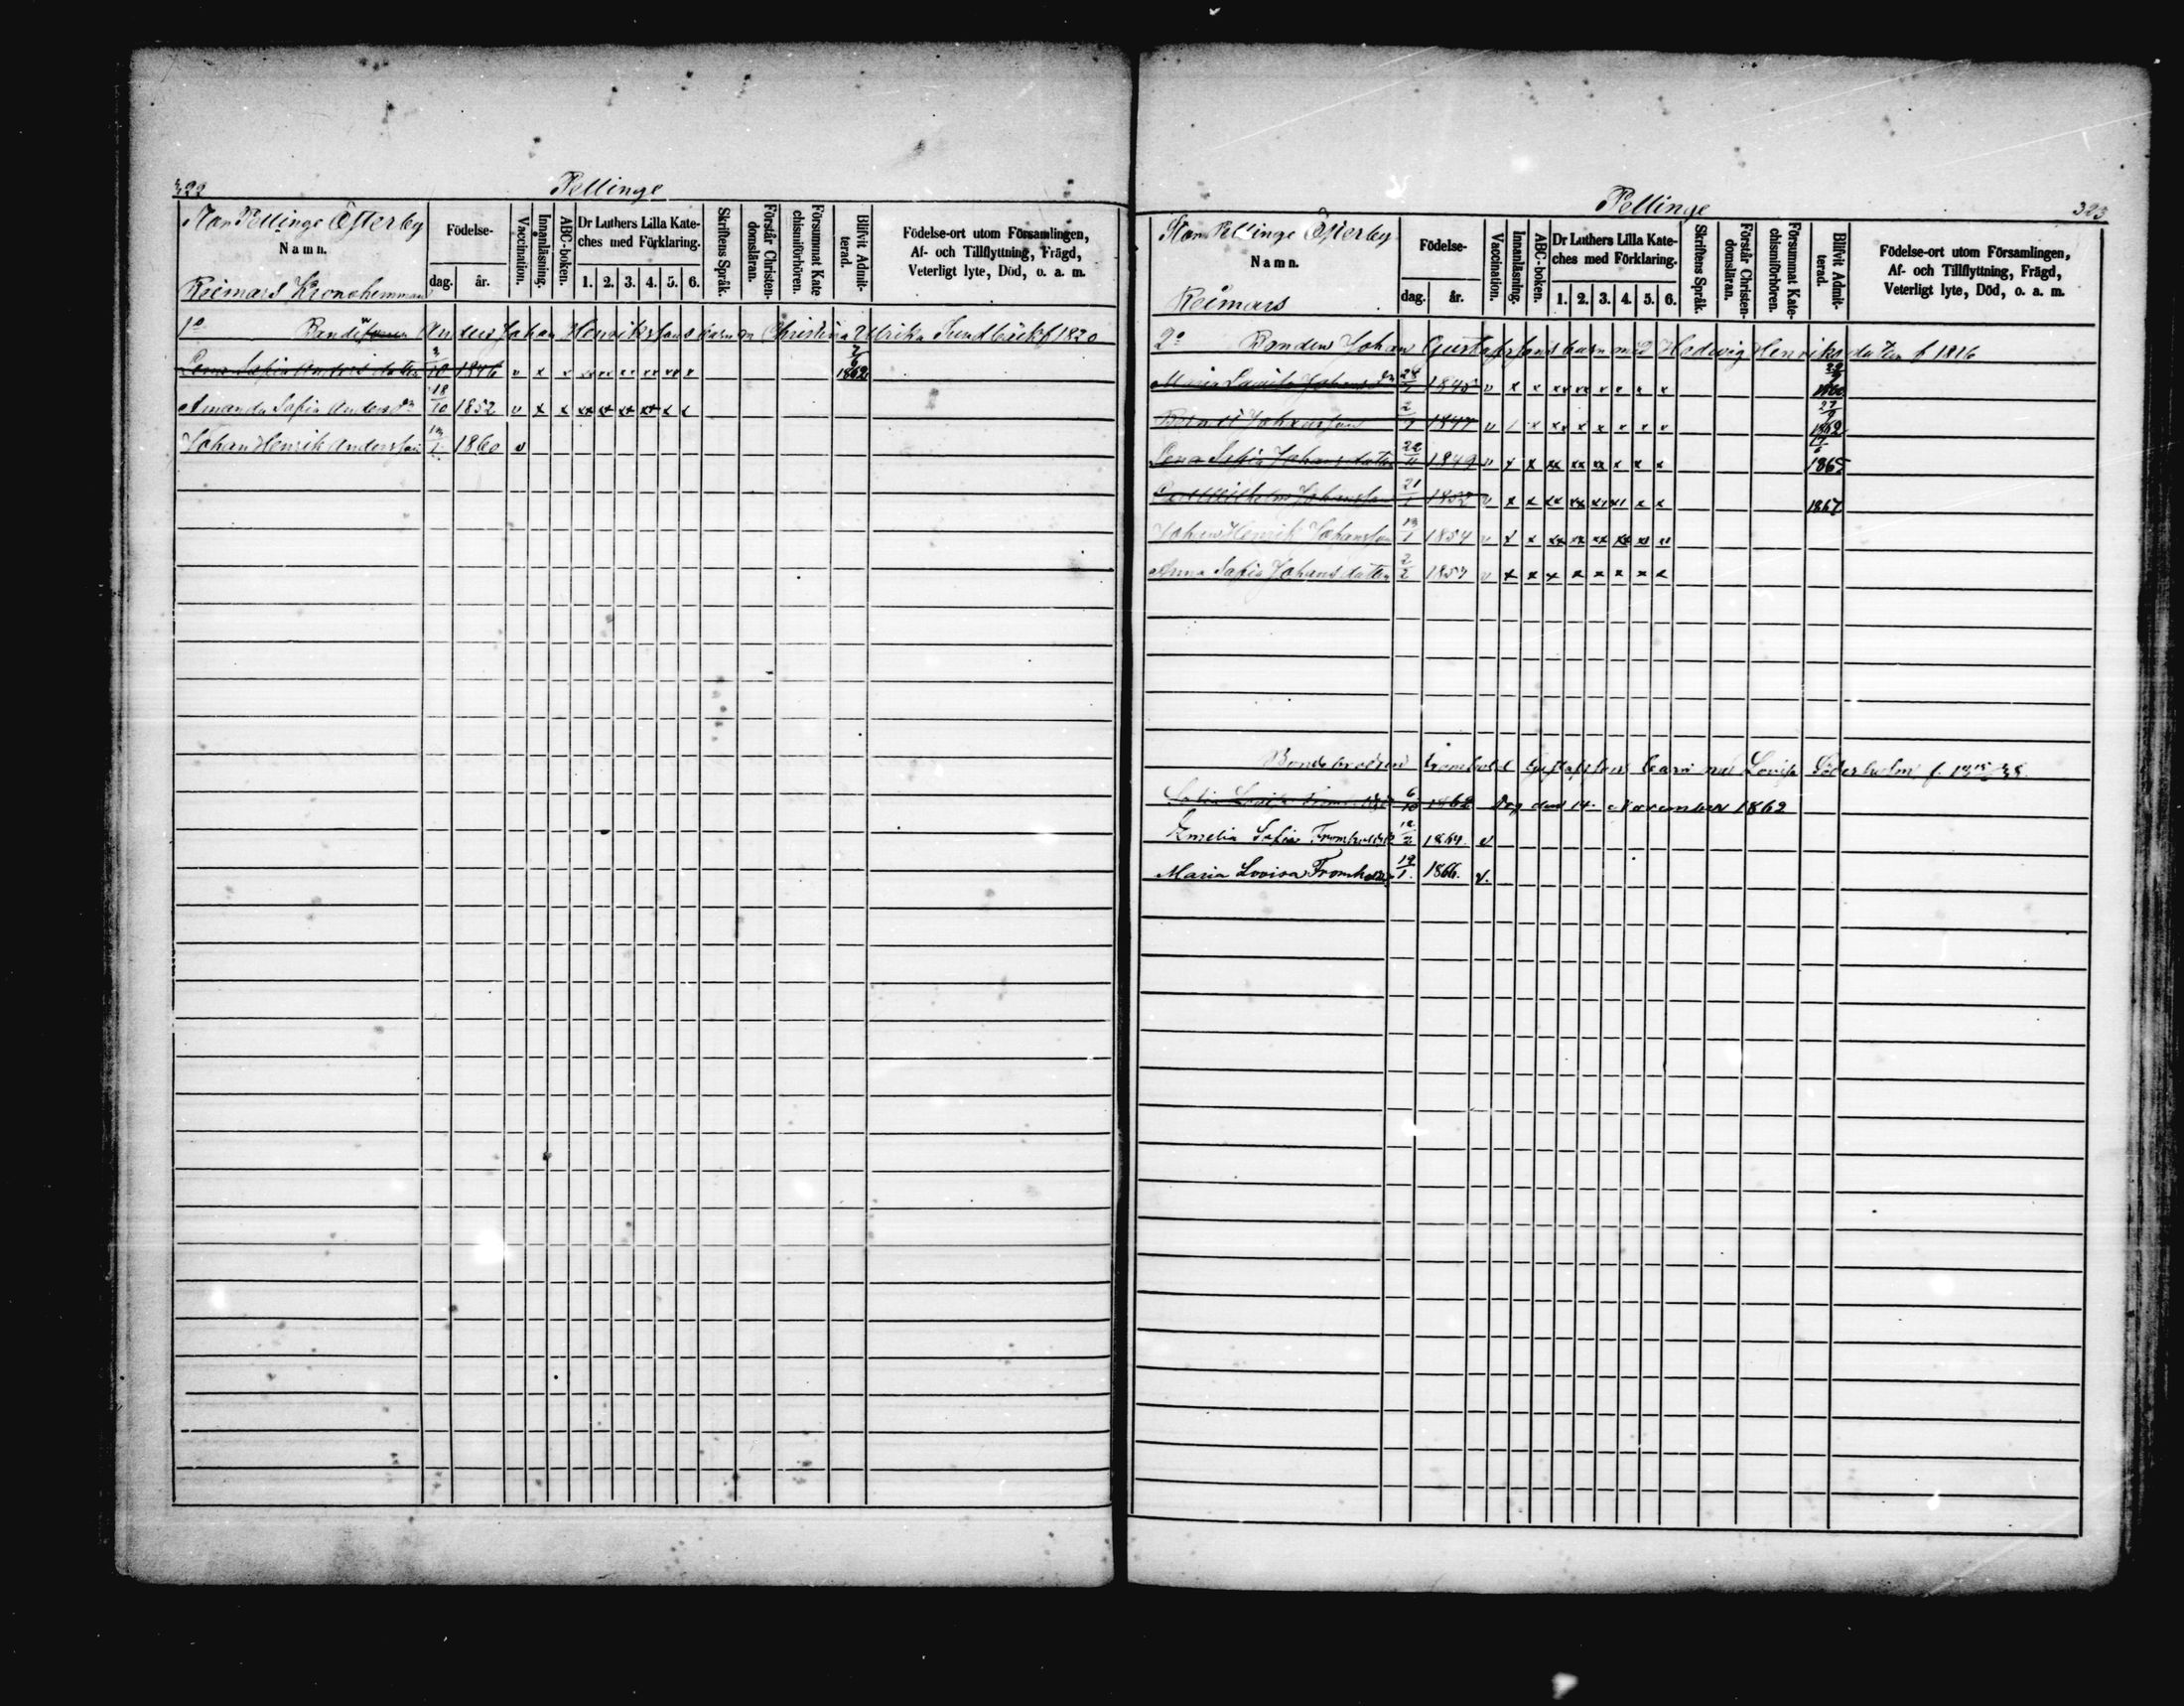 322
Pellinge
Stor Pellinge Österby
Namn.
Reimars Kronohemman
Födelse-
dag.
år.
Vaccination.
Innanläsning.
ABC-boken.
Dr Luthers Lilla Kate-
ches med Förklaring.
1. 2. 3. 4. 5. 6.
Skriftens Språk.
Förstår Christen-
domsläran.
Försummat Kate
chismiförhören.
Blifvit Admit-
terad.
Födelse-ort utom Församlingen,
Af- och Tillflyttning, Frägd,
Veterligt lyte, Död, o. a. m.
1º Anders Johan Henrikssons barn m Christina Ulrika Sundbäck f 1820
Lena Sofia Andersdotter 10 1846 v x x xx xx xx xx xx x 1862
Amanda Sofia Andersdr 18/10 1852 v x x xx xx xx xx x x
Johan Henrik Andersson 1860 v
Pellinge
323
Stor Pellinge Österby
Namn.
Reimars
Födelse-
dag.
år.
Vaccination.
Innanläsning.
ABC-boken.
Dr Luthers Lilla Kate-
ches med Förklaring.
1. 2. 3. 4. 5. 6.
Skriftens Språk.
Förstår Christen-
domsläran.
Försummat Kate-
chismiförhören.
Blifvit Admit-
terad.
Födelse-ort utom Församlingen,
Af- och Tillflyttning, Frägd,
Veterligt lyte, Död, o. a. m.
2º Bonden Johan Gustafssons barn med Hedvig Henriksdotter f 1816
Maria Lovisa Johansdr 1845 v x x xx xx x x x x
Johansson 1847 v / x xx x x x x x 1862
Lena Sofia Johansdotter 22/11 1849 v x x xx xx xx x x x 1865
Carl Wilhelm Johansson 21/1 1852 v x x xx xx x x 1867
Johan Henrik Johansson 1854 v x x xx xx xx xx xx
Anna Sofia Johansdotter 2/2 1857 v x x x x x x x x
Gustafsson barn med Lovisa Söderholm f.
Lovisa 6/10 1862 Dog den 14. November 1862
Emelia Sofia 1864. v
Maria Lovisa 19/1. 1866. v.